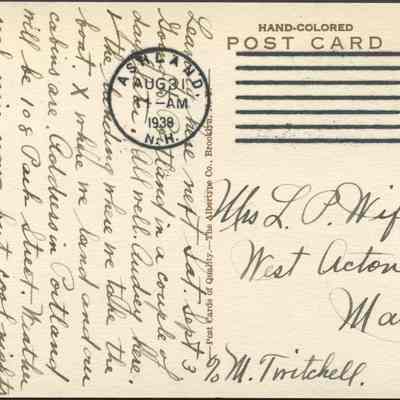 HAND-COLORED
POST CARD
ASHLAND.
AUG 31
-AM
1938
N.H.
Mrs L. P. Wif
West Acton
Ma
c/o M. Twitchell.
Post Cards of Quality.—The Albertype Co., Brooklyn,
Leav here next Sat. Sept 3
Portland in a couple of
days. All well. Audrey here.
the landing where we take the
boat X where we land and our
cabins are. Address in Portland
will be 108 Park Street. Weather
but cool nights